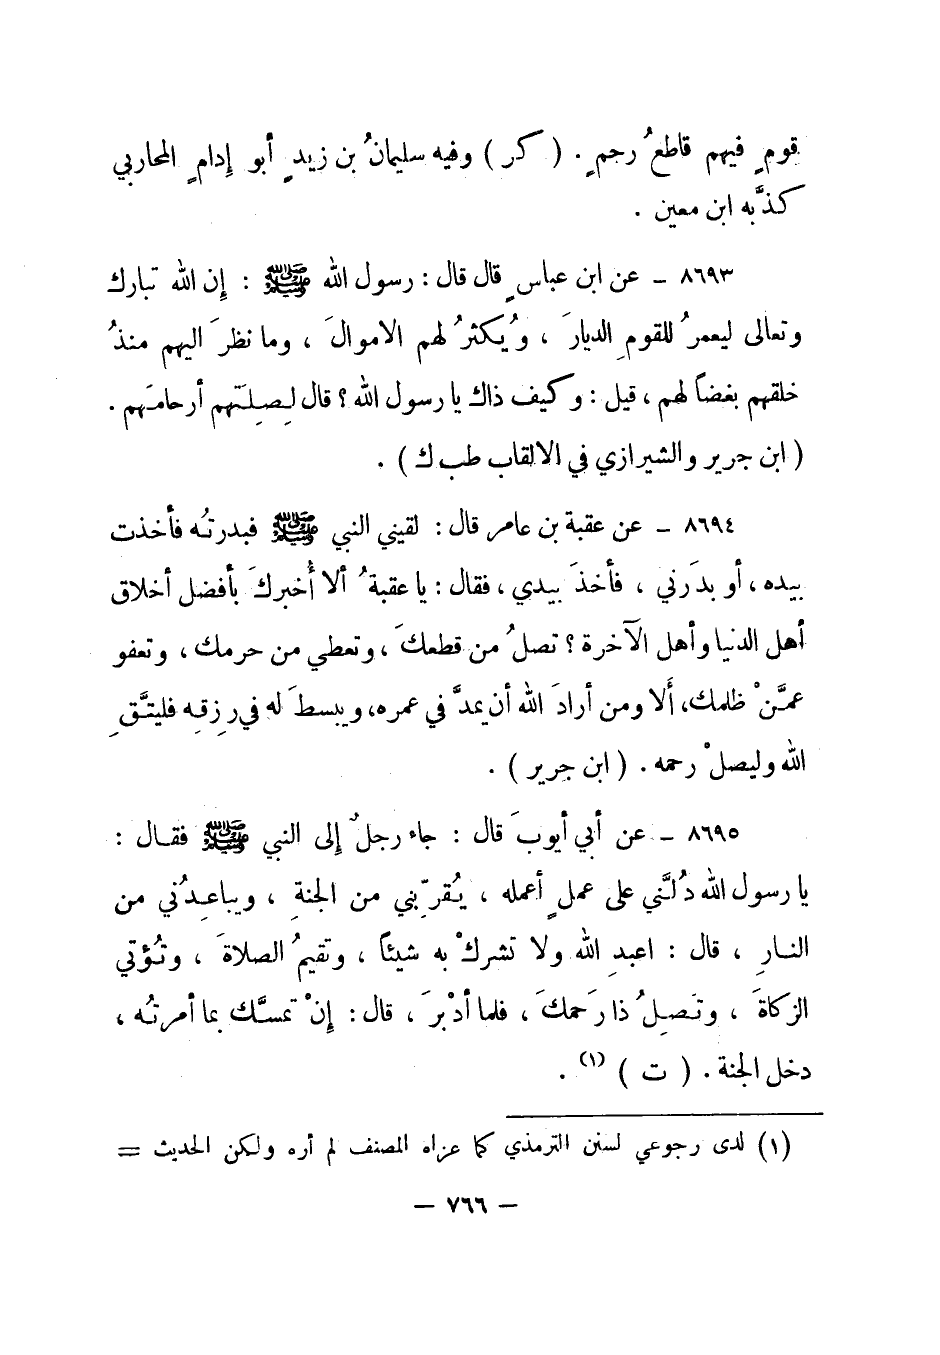 قومٍ فيهم قاطعُ رحمٍ . ( كر ) وفيه سليمانُ بن زيدٍ أبو إدامٍ المحاربي
كذَّبه ابن معين .
٨٦٩٣ ـ عن ابن عباسٍ قال قال : رسول الله ﷺ : إن الله تبارك
وتعالى ليعمرُ للقومِ الديارَ ، ويُكثرُ لهم الاموالَ ، وما نظرَ اليهم منذُ
خلقهم بغضاً لهم ، قيل : وكيف ذاك يا رسول الله ؟ قال لِصِلَتِهم أرحامَهم .
( ابن جرير والشيرازي في الالقاب طب ك ) .
٨٦٩٤ ـ عن عقبة بن عامر قال : لقيني النبي ﷺ فبدرتُه فأخذت
بيده ، أو بدَرني ، فأخذَ بيدي ، فقال : يا عقبةُ ألا أُخبركَ بأفضل أخلاق
أهل الدنيا وأهل الآخرة ؟ تصلُ من قطعكَ ، وتعطي من حرمك ، وتعفو
عمَّنْ ظلمك، ألا ومن أرادَ الله أن يمدَّ في عمره، ويبسطَ له في رِزقِه فليتَّقِ
الله وليصلْ رحمه . ( ابن جرير ) .
٨٦٩٥ ـ عن أبي أيوبَ قال : جاء رجلٌ إلى النبي ﷺ فقال :
يا رسول الله دُلَّني على عملٍ أعمله ، يُقرّبني من الجنةِ ، ويباعِدُني من
النارِ ، قال : اعبدِ الله ولا تشركْ به شيئاً ، وتقيمُ الصلاةَ ، وتُؤتي
الزكاةَ ، وتَصِلُ ذا رَحمكَ ، فلما أدْبرَ ، قال : إنْ تمسَّك بما أمرتُه ،
دخل الجنة . ( ت ) (١) .
(١) لدى رجوعي لسنن الترمذي كما عزاه المصنف لم أره ولكن الحديث =
ـ ٧٦٦ ـ